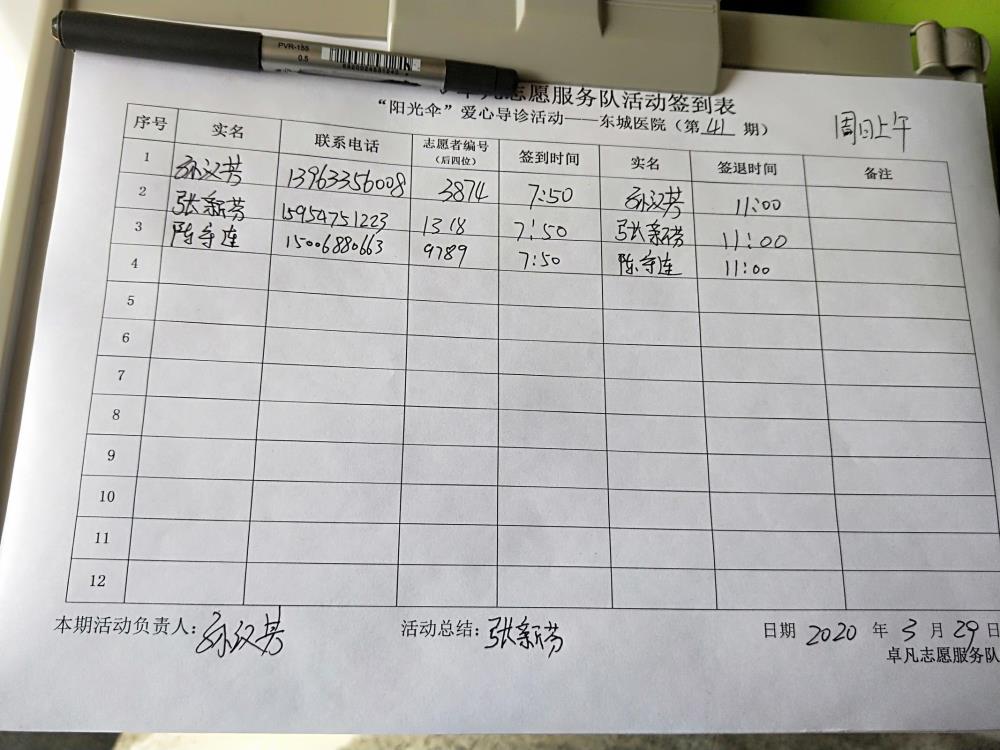 PVR-155
0.5
卓凡志愿服务队活动签到表
“阳光伞”爱心导诊活动——东城医院（第 41 期）
周日上午
序号 实名 联系电话 志愿者编号（后四位） 签到时间 实名 签退时间 备注
1 孙汉芳 13963356008 3874 7:50 孙汉芳 11:00
2 张新芬 15954751223 1318 7:50 张新芬 11:00
3 陈守连 15006880663 9789 7:50 陈守连 11:00
4
5
6
7
8
9
10
11
12
本期活动负责人：孙汉芳 活动总结：张新芬 日期 2020 年 3 月 29 日
卓凡志愿服务队